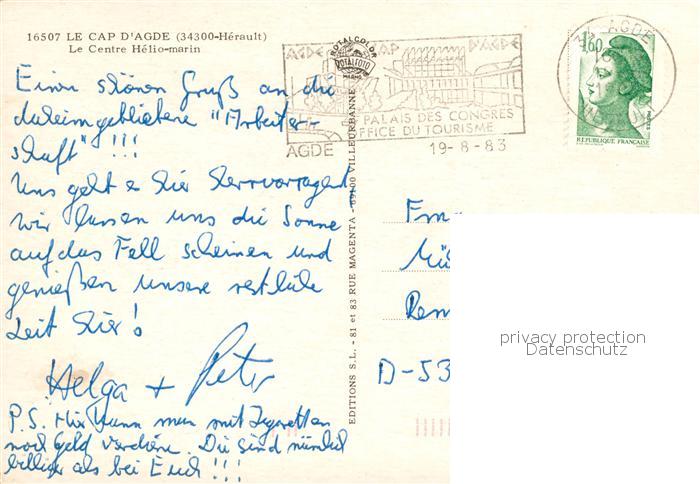 16507 LE CAP D'AGDE (34300-Hérault)
Le Centre Hélio-marin
Einen schönen Gruß an die
daheimgebliebene "Arbeiter-
schaft" !!!
Uns geht es hier hervorragend,
wir lassen uns die Sonne
auf das Fell scheinen und
genießen unsere restliche
Zeit hier!
Helga + Peter
P.S. Hier kann man mit Zigaretten
noch Geld verdienen. Die sind nämlich
billiger als bei Euch !!!
EDITIONS S.L. - 81 et 83 RUE MAGENTA - 69100 VILLEURBANNE
ROTALCOLOR
ROTALFOTO
AGDE CAP D'AGDE
PALAIS DES CONGRES
OFFICE DU TOURISME
AGDE 19-8-83
34 AGDE
1,60
REPUBLIQUE FRANÇAISE
Fma
D-53
privacy protection
Datenschutz